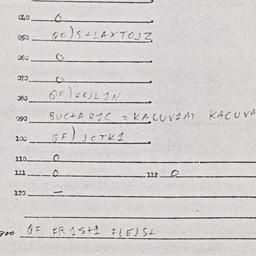 040 0
050 GF)S+LAXTOJZ
060 0
070 0
080 GF)KOJL1N
090 BUC+AR1C = KACUV1M KACUVA
100 GF)JOTK1
110 0
111 0 112 0
120 —
GF FR1S+1 FLEJS+